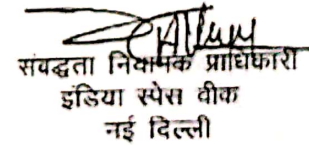 संवद्धता नियामक प्राधिकारी
इंडिया स्पेस वीक
नई दिल्ली